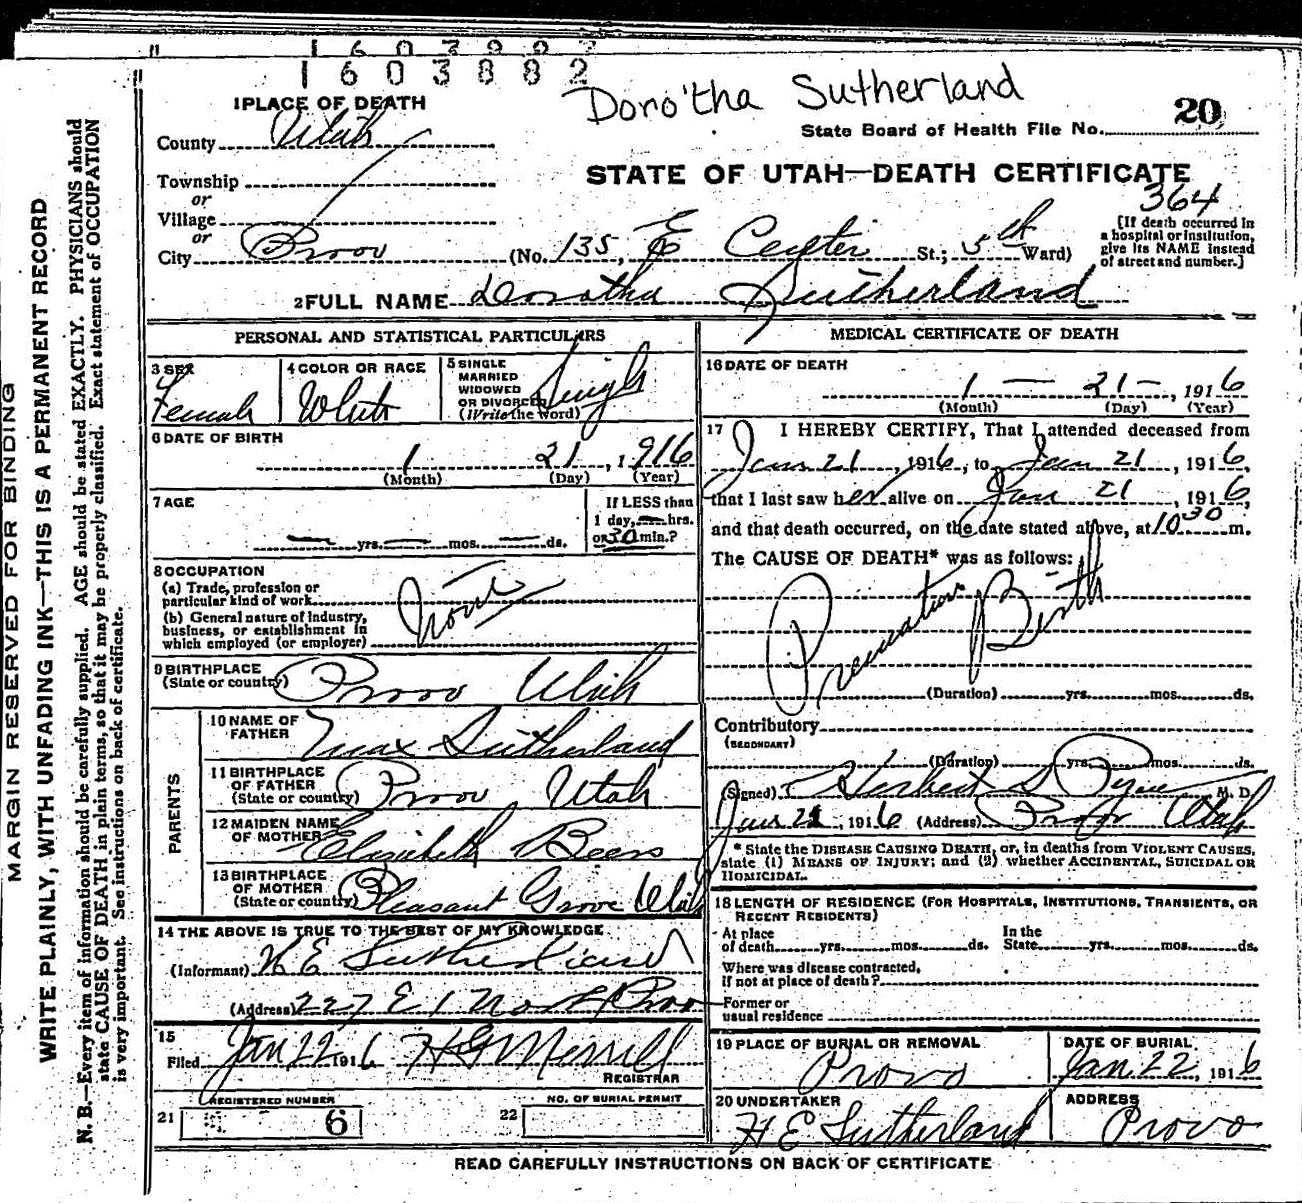 1603882
Doro'tha Sutherland
20
State Board of Health File No.
STATE OF UTAH—DEATH CERTIFICATE
364
1 PLACE OF DEATH
County Utah
Township
or
Village
or
City Provo (No. 135, E Center St.; 5th Ward)
[If death occurred in
a hospital or institution,
give its NAME instead
of street and number.]
2 FULL NAME Dorotha Sutherland
PERSONAL AND STATISTICAL PARTICULARS
3 SEX
Female
4 COLOR OR RACE
White
5 SINGLE
MARRIED
WIDOWED
OR DIVORCED
(Write the word)
Single
6 DATE OF BIRTH
1 21, 1916
(Month) (Day) (Year)
7 AGE
— yrs. — mos. — ds.
If LESS than
1 day, — hrs.
or 30 min.?
8 OCCUPATION
(a) Trade, profession or
particular kind of work
(b) General nature of industry,
business, or establishment in
which employed (or employer)
None
9 BIRTHPLACE
(State or country)
Provo Utah
PARENTS
10 NAME OF
FATHER
Max Sutherland
11 BIRTHPLACE
OF FATHER
(State or country)
Provo Utah
12 MAIDEN NAME
OF MOTHER
Elizabeth Beers
13 BIRTHPLACE
OF MOTHER
(State or country)
Pleasant Grove Utah
14 THE ABOVE IS TRUE TO THE BEST OF MY KNOWLEDGE
(Informant) H E Sutherland
(Address) 227 E 1 North Provo
15
Filed Jan 22 1916 H G Merrill
REGISTRAR
REGISTERED NUMBER
21 6
NO. OF BURIAL PERMIT
22
MEDICAL CERTIFICATE OF DEATH
16 DATE OF DEATH
1 — 21 —, 1916
(Month) (Day) (Year)
17 I HEREBY CERTIFY, That I attended deceased from
Jan 21, 1916, to Jan 21, 1916,
that I last saw her alive on Jan 21, 1916,
and that death occurred, on the date stated above, at 10 30 m.
The CAUSE OF DEATH* was as follows:
Premature Birth
(Duration) yrs. mos. ds.
Contributory
(SECONDARY)
(Duration) yrs. mos. ds.
(Signed) Herbert S Pyne M. D.
Jan 21, 1916 (Address) Provo Utah
* State the DISEASE CAUSING DEATH, or, in deaths from VIOLENT CAUSES,
state (1) MEANS OF INJURY; and (2) whether ACCIDENTAL, SUICIDAL OR
HOMICIDAL.
18 LENGTH OF RESIDENCE (FOR HOSPITALS, INSTITUTIONS, TRANSIENTS, OR
RECENT RESIDENTS)
At place
of death yrs. mos. ds.
In the
State yrs. mos. ds.
Where was disease contracted,
if not at place of death?
Former or
usual residence
19 PLACE OF BURIAL OR REMOVAL
Provo
DATE OF BURIAL
Jan. 22, 1916
20 UNDERTAKER
H E Sutherland
ADDRESS
Provo
READ CAREFULLY INSTRUCTIONS ON BACK OF CERTIFICATE
MARGIN RESERVED FOR BINDING
WRITE PLAINLY, WITH UNFADING INK—THIS IS A PERMANENT RECORD
N. B.—Every item of information should be carefully supplied. AGE should be stated EXACTLY. PHYSICIANS should
state CAUSE OF DEATH in plain terms, so that it may be properly classified. Exact statement of OCCUPATION
is very important. See instructions on back of certificate.